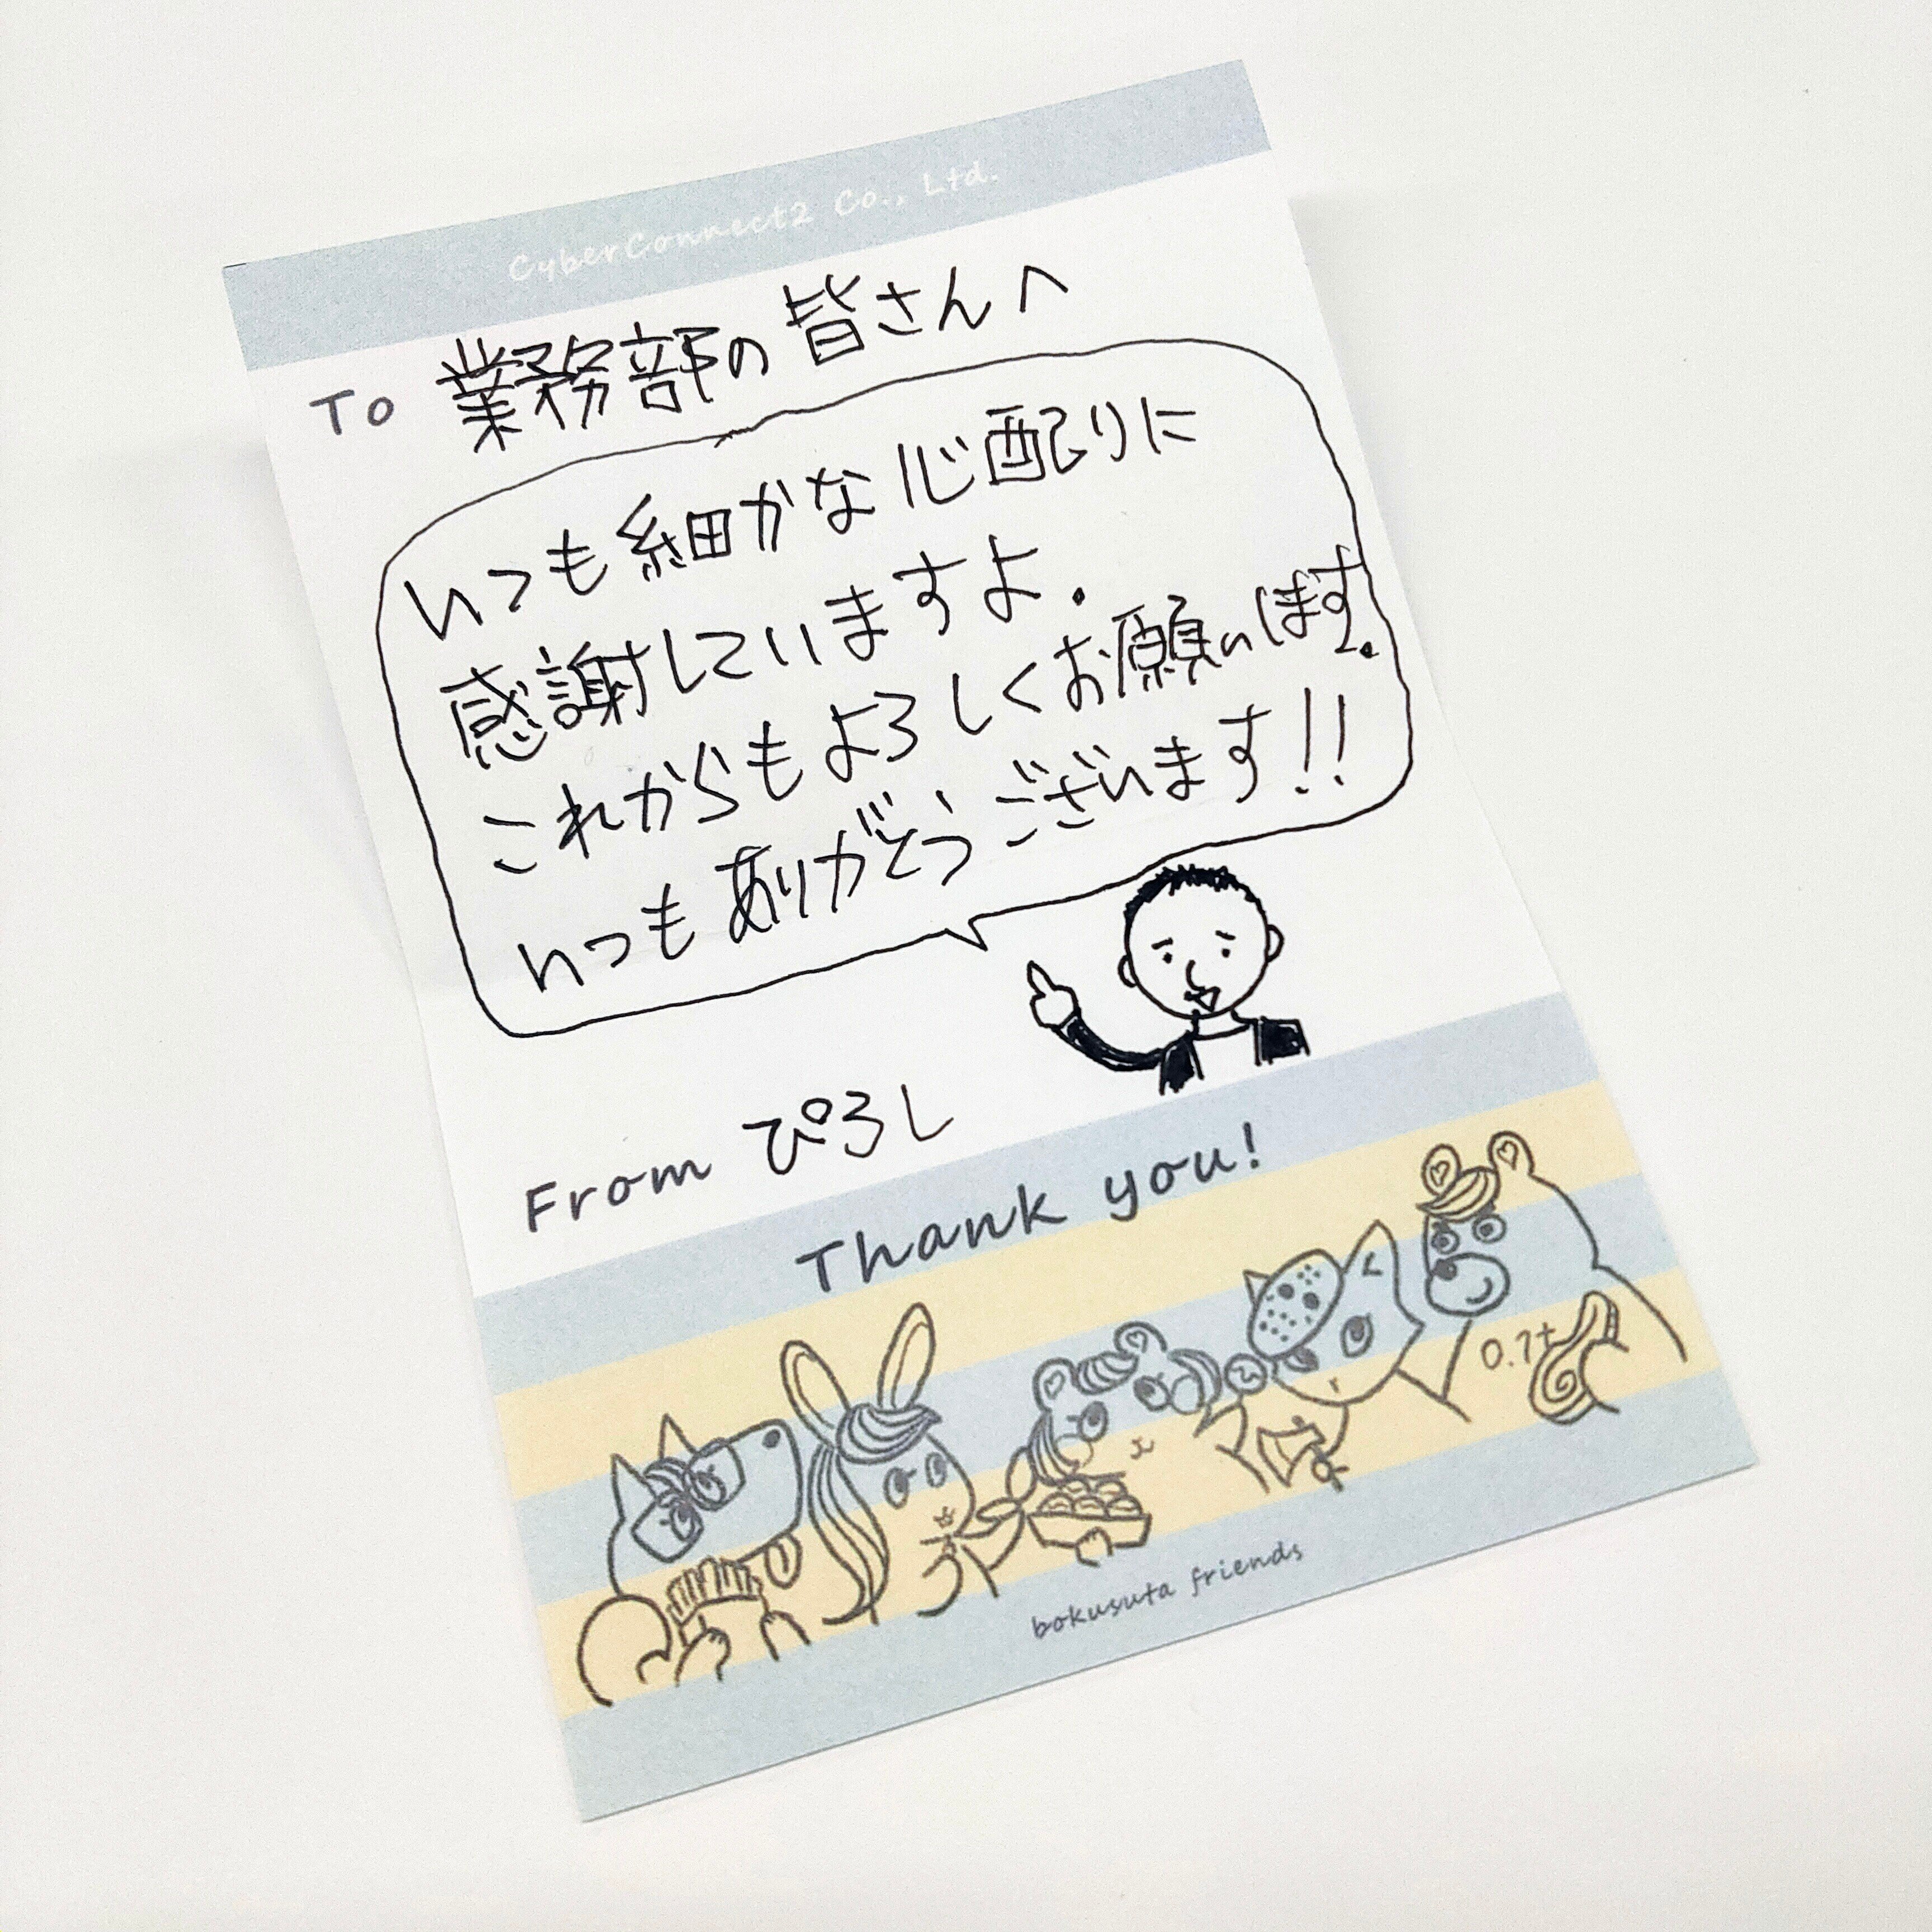 CyberConnect2 Co., Ltd.
To 業務部の皆さんへ
いつも細かな心配りに
感謝していますよ.
これからもよろしくお願いします.
いつもありがとうございます!!
From ぴろし
Thank you!
0.7t
bokusuta friends